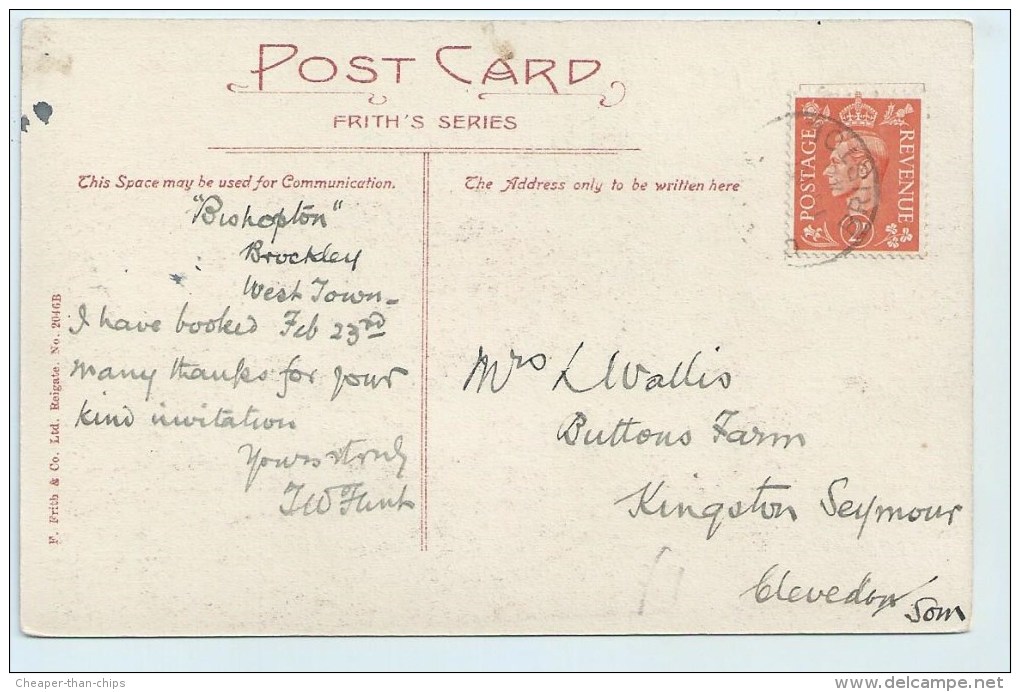 POST CARD
FRITH'S SERIES
This Space may be used for Communication.
The Address only to be written here
POSTAGE
REVENUE
2D
"Bishopton"
Brockley
West Town -
I have booked Feb 23rd
many thanks for your
kind invitation
Yours truly
Mrs L Wallis
Buttons Farm
Kingston Seymour
Clevedon Som
F. Frith & Co. Ltd. Reigate. No. 2046B
Cheaper-than-chips
www.delcampe.net